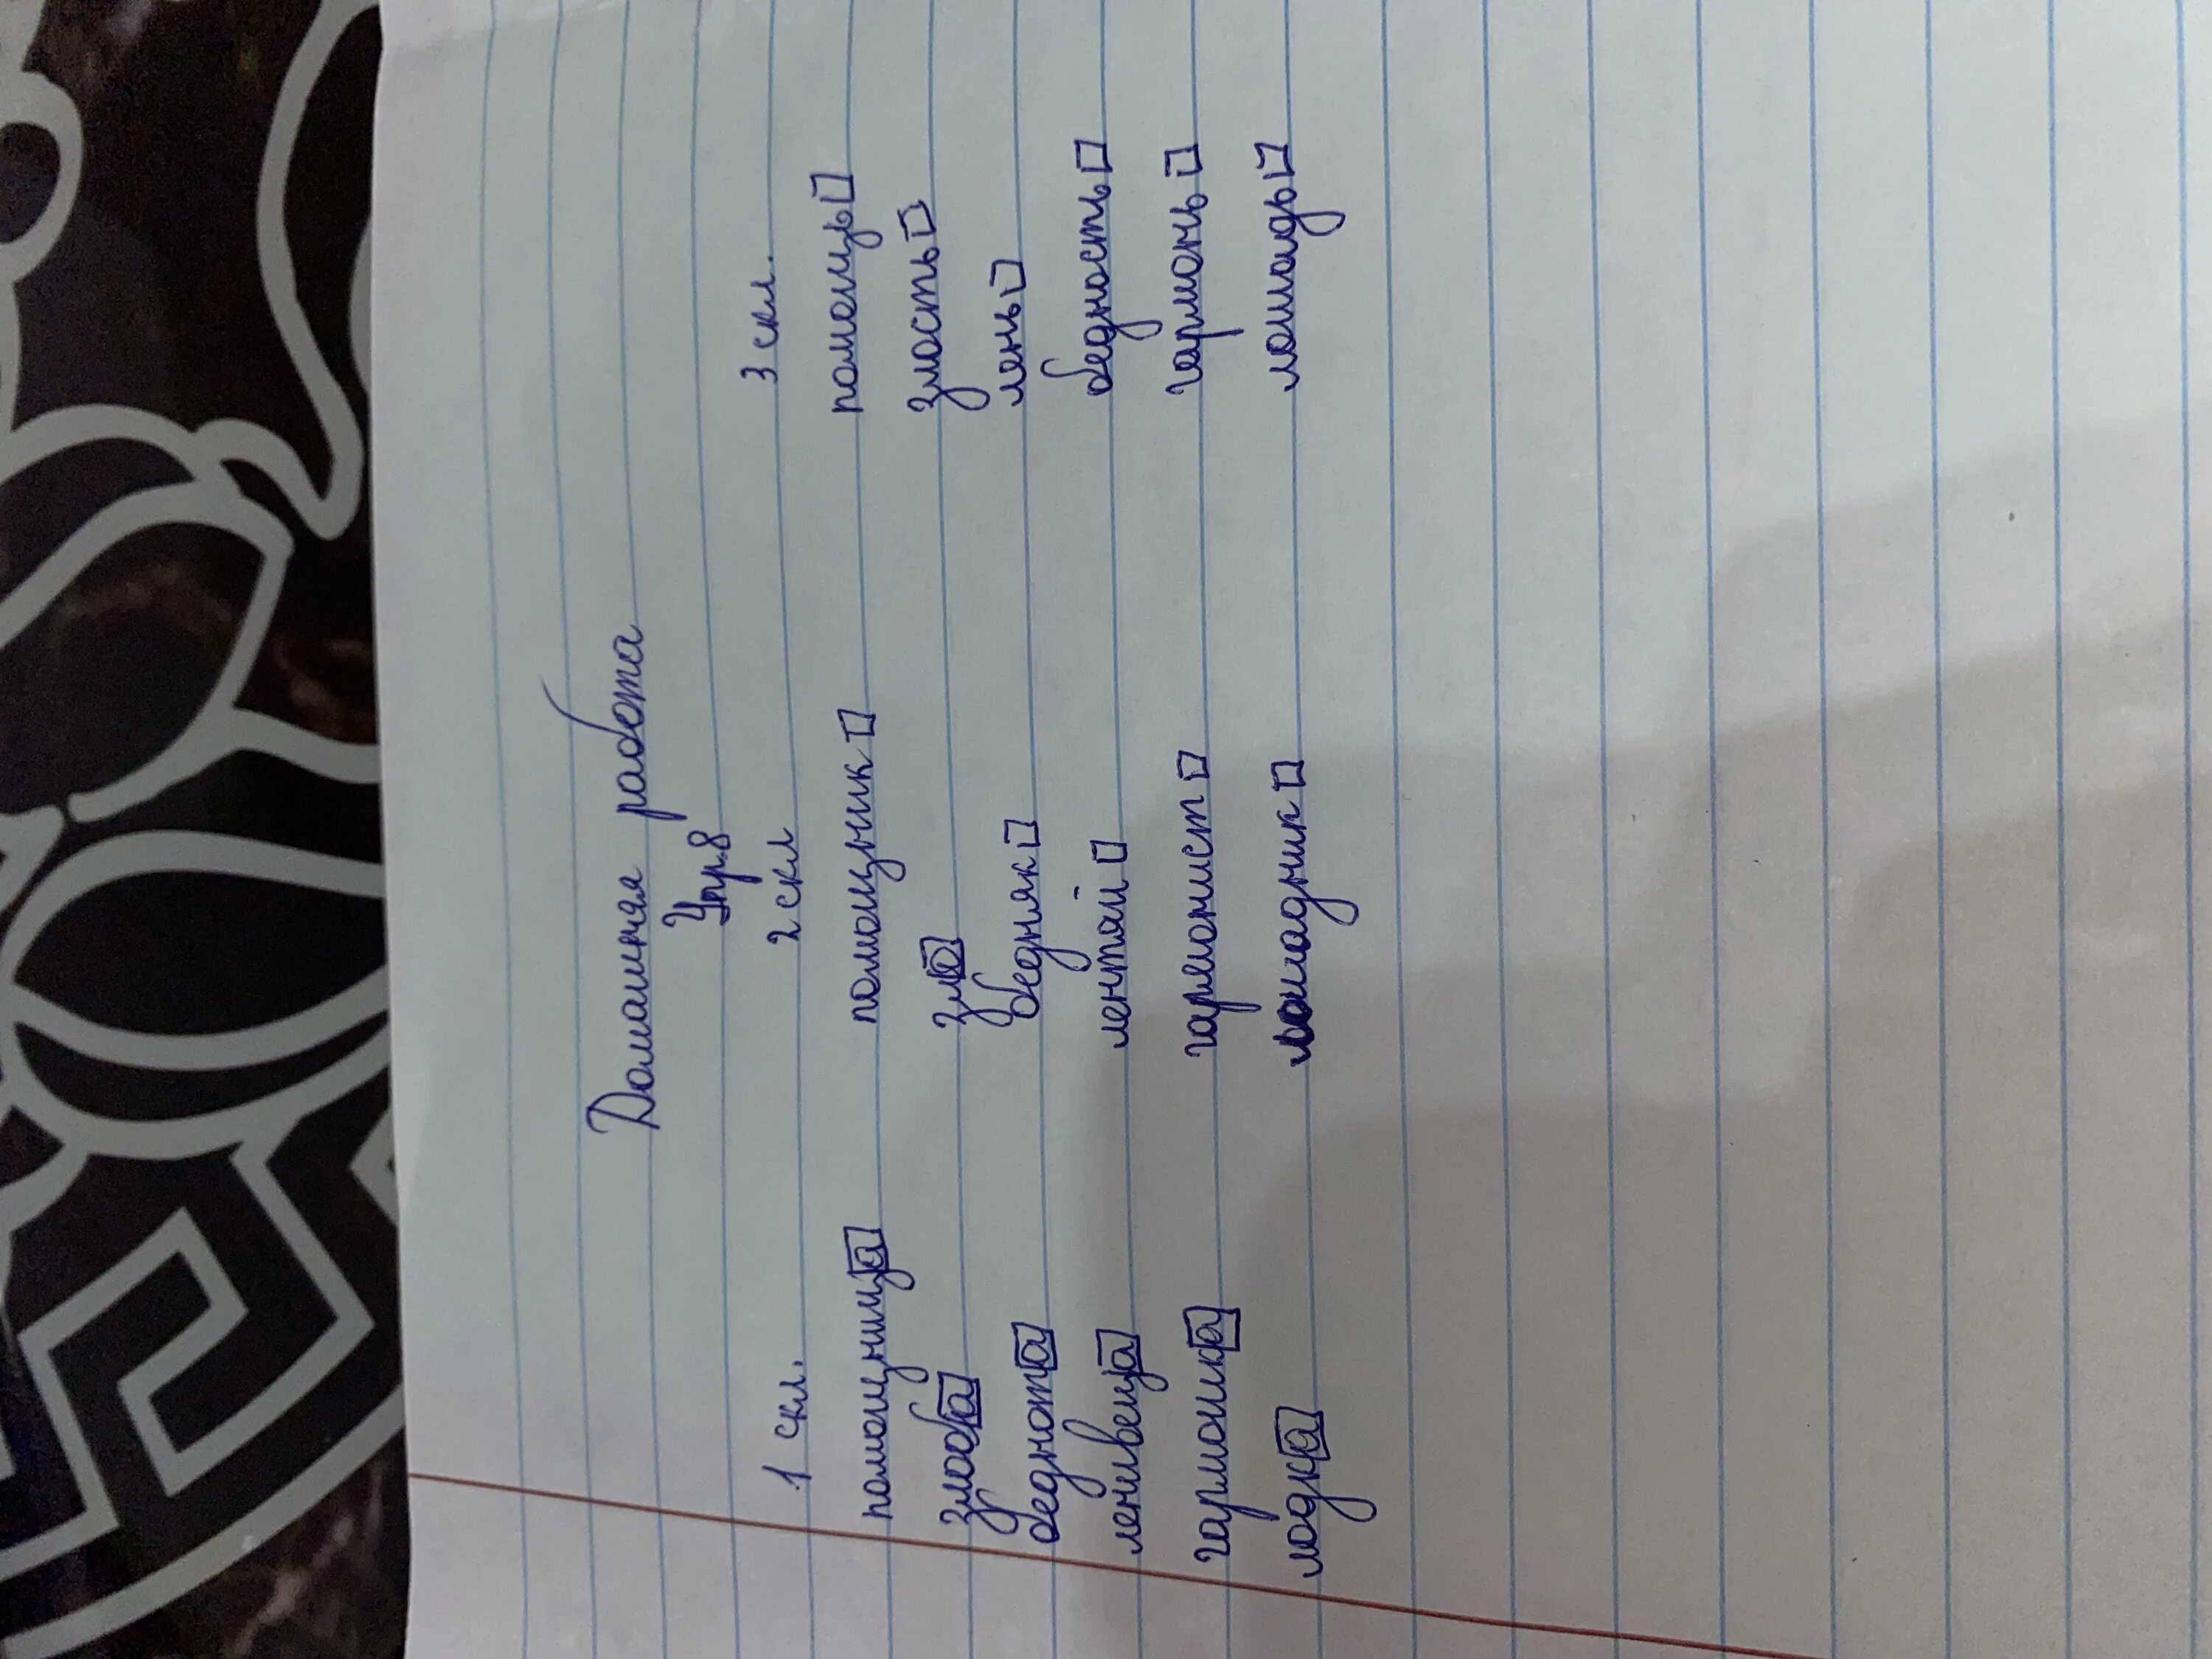 Домашняя работа
Упр.8
1 скл. 2 скл 3 скл.
помощница помощник помощь
злоба зло злость
беднота бедняк лень
ленивеца лентяй бедность
гармошка гармонист гармонь
лодка лошадник лошадь